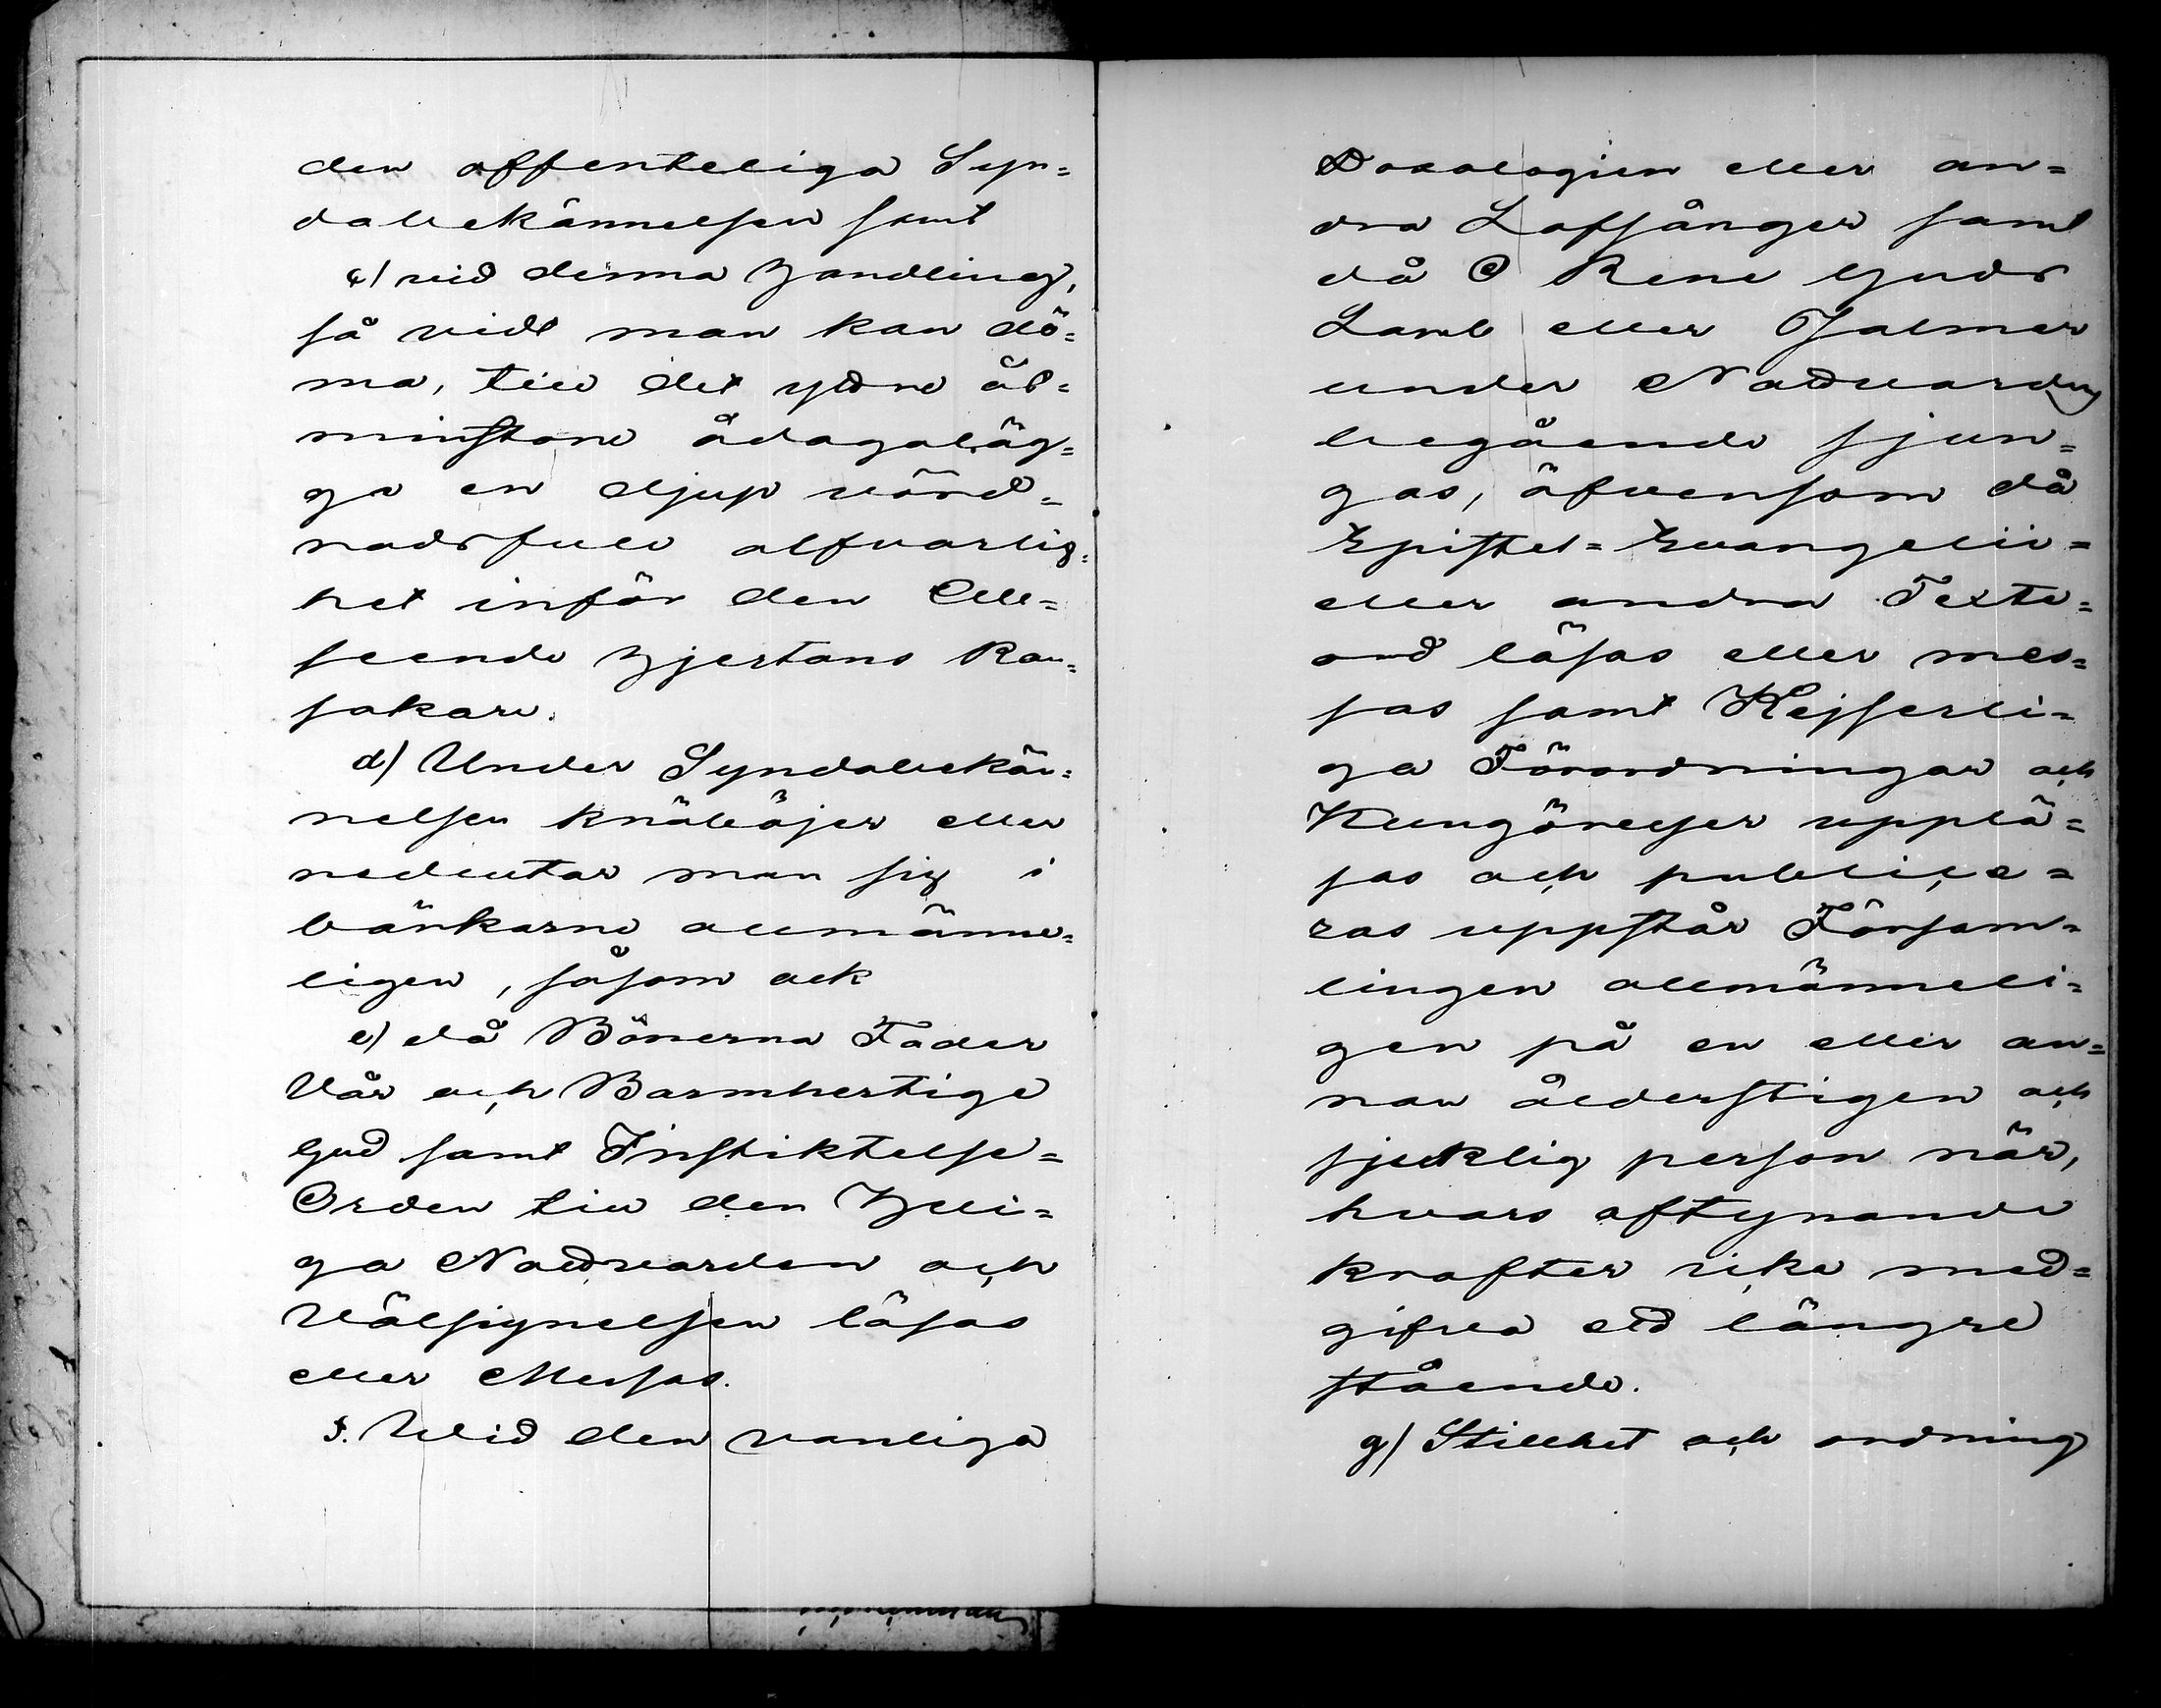 den offenteliga Syn=
dabekännelsen samt
c) vid denna Handling,
så vidt man kan dö=
ma, till det yttre åt=
minstone ådagaläg=
ga en djup vörd=
nadsfull alfvarlig=
het inför den All=
seende Hjertans Ran=
sakare.
d) Under Syndabekän=
nelsen knäböjer eller
nedlutar man sig i
bänkarne allmänne=
ligen, såsom ock
e) då Bönerna Fader
Vår och Barmhertige
Gud samt Instiktelse=
Orden till den Heli=
ga Nattvarden och
Välsignelsen läsas
eller Messas.
f. Wid den vanliga
Doxologien eller an=
dra Lofsånger samt
då O Rene Guds
Lamb eller Psalmer
under Nattvardens
begående sjun=
gas, äfvensom då
Epistel= Evangelii=
eller andra Texte=
ord läsas eller mes=
sas samt Kejserli=
ga Förordningar och
Kungörelser upplä=
sas och publice=
ras uppstår Försam=
lingen allmänneli=
gen på en eller an=
nan ålderstigen och
sjuklig person när,
hvars aftynande
krafter icke med=
gifva ett längre
stående.
g) Stillhet och ordning